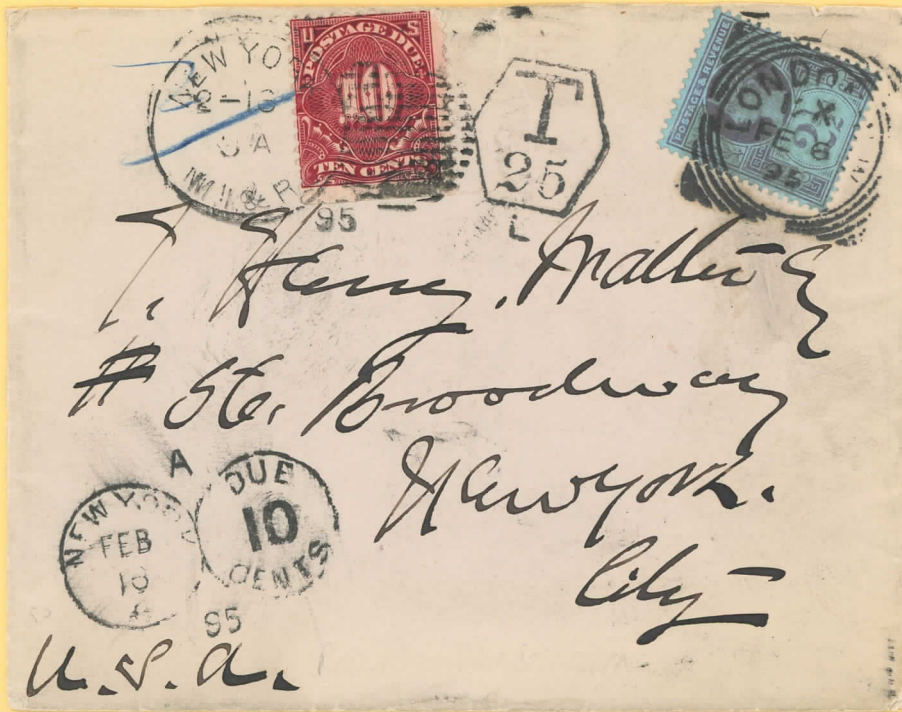 NEW YORK
2-18
U S
POSTAGE DUE
10
TEN CENTS
95
T
25
L
POSTAGE & REVENUE
LONDON
X
FE 8
95
T. Henry. Walter
# 56. Broadway
New York.
City
A
NEW YORK
FEB
18
DUE
10
CENTS
95
U.S.A.